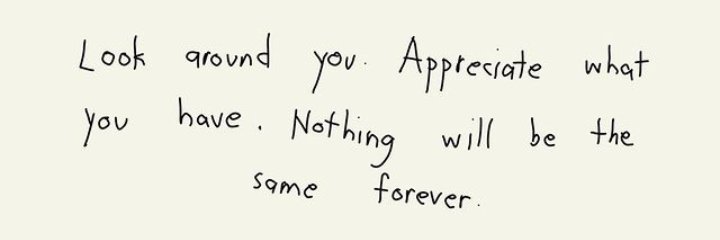 Look around you. Appreciate what
you have. Nothing will be the
same forever.